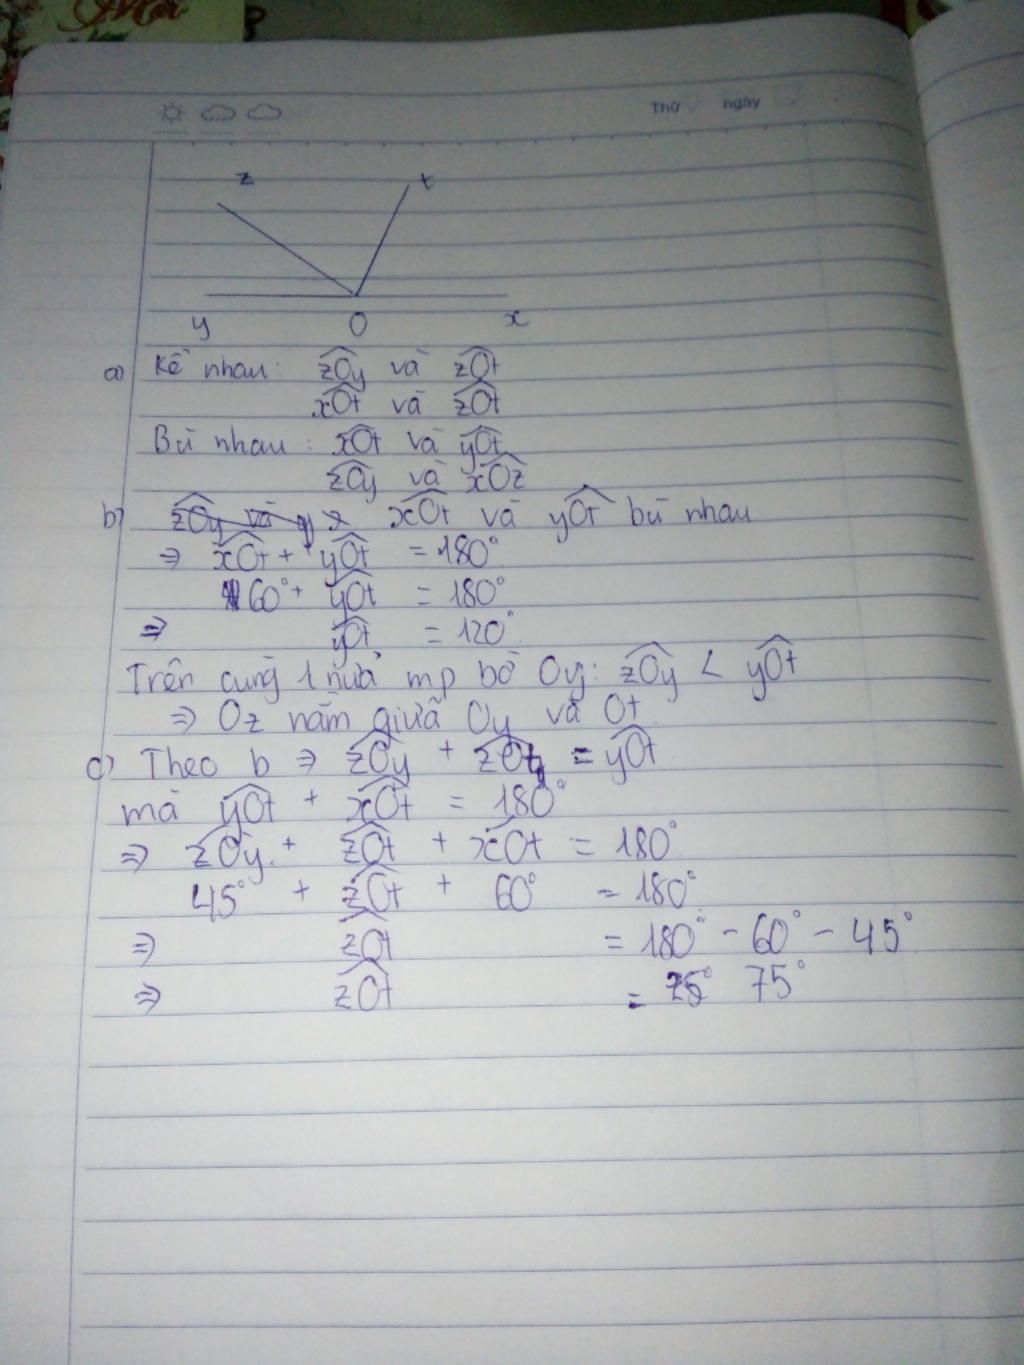 Thứ ngày
z t
y O x
a) Kề nhau: zOy và zOt
xOt và zOt
Bù nhau: xOt và yOt
zOy và xOz
b) zOy và y xOt và yOt bù nhau
⇒ xOt + yOt = 180°
60° + yOt = 180°
⇒ yOt = 120°
Trên cùng 1 nửa mp bờ Oy: zOy < yOt
⇒ Oz nằm giữa Oy và Ot
c) Theo b ⇒ zOy + zOt = yOt
mà yOt + xOt = 180°
⇒ zOy + zOt + xOt = 180°
45° + zOt + 60° = 180°
⇒ zOt = 180° - 60° - 45°
⇒ zOt = 75° 75°